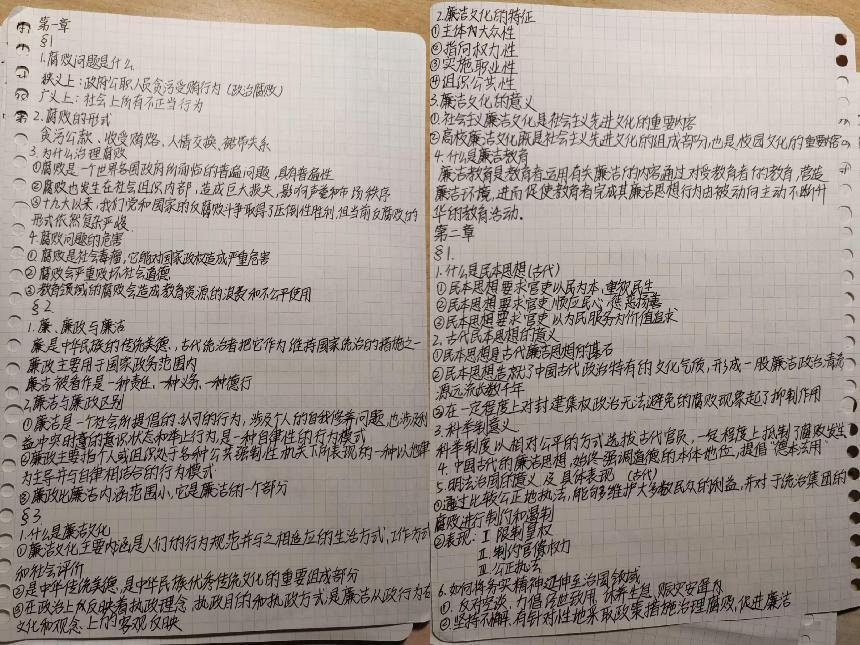 第一章
§1
1.腐败问题是什么
狭义上:政府公职人员贪污受贿行为(政治腐败)
广义上:社会上所有不正当行为
2.腐败的形式
贪污公款、收受贿赂、人情交换、裙带关系
3.为什么治理腐败
①腐败是一个世界各国政府所面临的普遍问题,具有普遍性
②腐败也发生在社会组织内部,造成巨大损失,影响声誉和市场秩序
③十九大以来,我们党和国家的反腐败斗争取得了压倒性胜利,但当前反腐败的
形式依然复杂严峻.
4.腐败问题的危害
①腐败是社会毒瘤,它能对国家政权造成严重危害
②腐败会严重败坏社会道德
③教育领域的腐败会造成教育资源的浪费和不公平使用
§2.
1.廉、廉政与廉洁
廉是中华民族的传统美德,古代统治者把它作为维持国家统治的措施之一
廉政主要用于国家政务范围内
廉洁被看作是一种责任、一种义务、一种德行
2.廉洁与廉政区别
①廉洁是一个社会所提倡的、认可的行为,涉及个人的自我修养问题,也涉及利
益冲突时意的意识状态和举止行为,是一种自律性的行为模式
②廉政主要指个人或组织处于各种公共强制性机关下所表现的一种以他律
为主导并与自律相结合的行为模式
③廉政比廉洁内涵范围小,它是廉洁的一个部分
§3
1.什么是廉洁文化
①廉洁文化主要内涵是人们的行为规范并与之相适应的生活方式,工作方式
和社会评价
②是中华传统美德,是中华民族优秀传统文化的重要组成部分
③在政治上反映着执政理念、执政目的和执政方式是廉洁从政行为在
文化和观念上的客观反映
2.廉洁文化的特征
①主体大众性
②指向权力性
③实施职业性
④组织公共性
3.廉洁文化的意义
①社会主义廉洁文化是社会主义先进文化的重要内容
②高校廉洁文化既是社会主义先进文化的组成部分,也是校园文化的重要内容
4.什么是廉洁教育
廉洁教育是教育者运用有关廉洁的内容通过对受教育者的教育,营造
廉洁环境,进而促使教育者完成其廉洁思想行为由被动向主动不断升
华的教育活动.
第二章
§1.
1.什么是民本思想(古代)
①民本思想要求官吏以民为本,重视民生
②民本思想要求官吏顺应民心,惩恶扬善
③民本思想要求官吏以为民服务为价值追求
2.古代民本思想的意义
①民本思想是古代廉洁思想的基石
②民本思想造就了中国古代政治特有的文化气质,形成一股廉洁政治清流
源远流长数千年
③在一定程度上对封建集权政治无法避免的腐败现象起了抑制作用
3.科举制意义
科举制度以相对公平的方式选拔古代官员,一定程度上抵制了腐败发生
4.中国古代的廉洁思想,始终强调道德的本体地位,提倡"德本法用"
5.明法治国的意义及具体表现 (古代)
①通过比较公正地执法,能够维护大多数民众的利益,并对于统治集团的
腐败进行制约和遏制
②表现:Ⅰ 限制皇权
Ⅱ.制约官僚权力
Ⅲ.公正执法
6.如何将务实精神延伸至治国领域
①.反对空谈,力倡经世致用,休养生息、赈灾安国内
②.坚持不懈、有针对性地采取政策措施治理腐败,促进廉洁